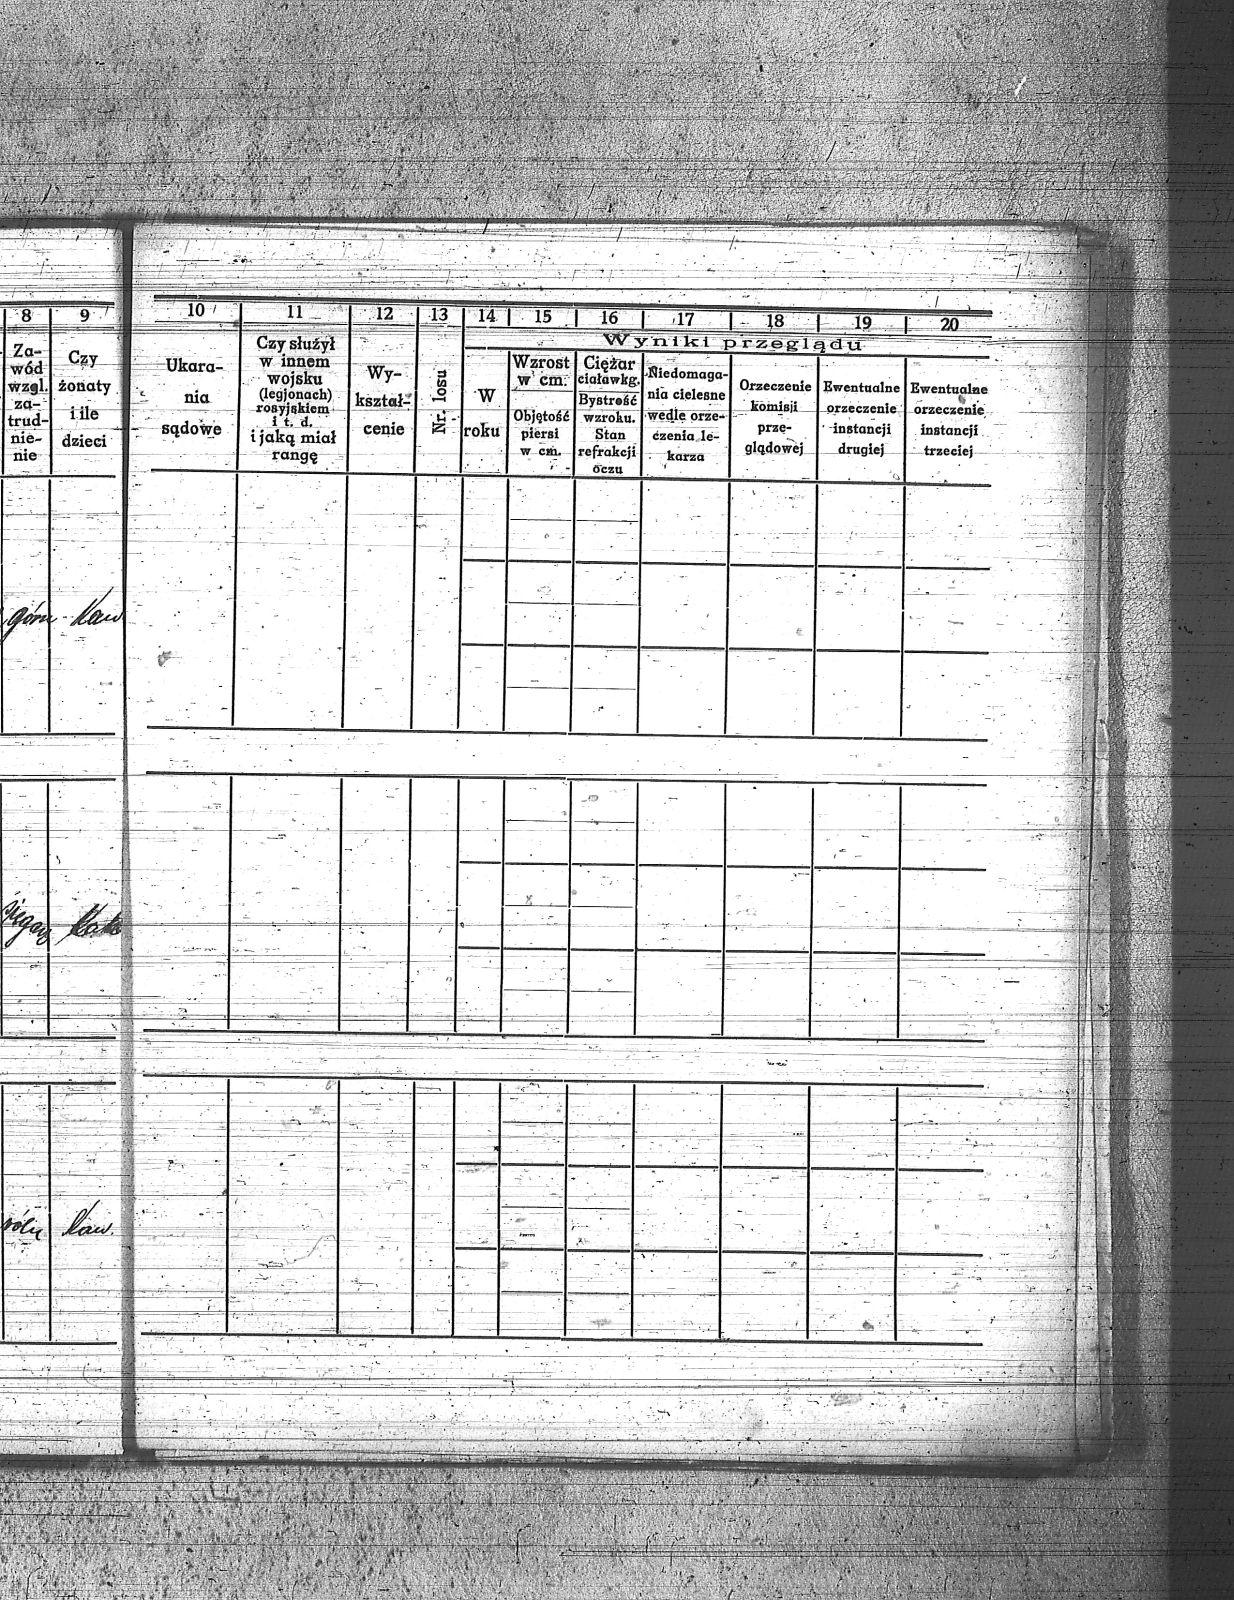 8
9
10
11
12
13
14
15
16
17
18
19
20
Za-
wód
wzgl.
za-
trud-
nie-
nie
Czy
żonaty
i ile
dzieci
Ukara-
nia
sądowe
Czy służył
w innem
wojsku
(legjonach)
rosyjskiem
i t. d.
i jaką miał
rangę
Wy-
kształ-
cenie
Nr. losu
Wyniki przeglądu
W
roku
Wzrost
w cm.
Objętość
piersi
w cm.
Ciężar
ciała w kg.
Bystrość
wzroku.
Stan
refrakcji
oczu
Niedomaga-
nia cielesne
wedle orze-
czenia le-
karza
Orzeczenie
komisji
prze-
glądowej
Ewentualne
orzeczenie
instancji
drugiej
Ewentualne
orzeczenie
instancji
trzeciej
górn Kaw
Kaw.